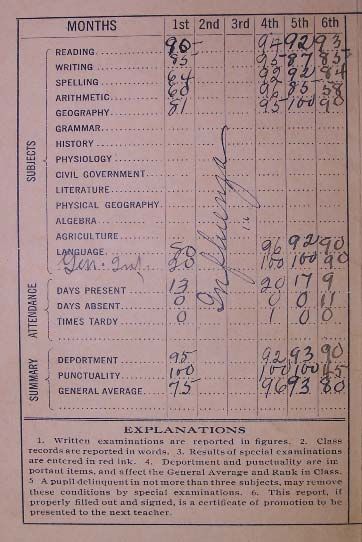 MONTHS 1st 2nd 3rd 4th 5th 6th
SUBJECTS
READING 90 94 92 93
WRITING 85 95 87 85
SPELLING 64 92 92 84
ARITHMETIC 60 95 85 58
GEOGRAPHY 81 95 100 90
GRAMMAR
HISTORY
PHYSIOLOGY
CIVIL GOVERNMENT
LITERATURE
PHYSICAL GEOGRAPHY
ALGEBRA
AGRICULTURE
LANGUAGE 80 96 92 90
Gen. Inf. 20 100 100 90
Influenza
ATTENDANCE
DAYS PRESENT 13 20 17 9
DAYS ABSENT 0 0 0 11
TIMES TARDY 0 1 0 0
SUMMARY
DEPORTMENT 95 92 93 90
PUNCTUALITY 100 100 100 45
GENERAL AVERAGE 75 96 93 80
EXPLANATIONS
1. Written examinations are reported in figures. 2. Class
records are reported in words. 3. Results of special examinations
are entered in red ink. 4. Deportment and punctuality are im-
portant items, and affect the General Average and Rank in Class.
5 A pupil delinquent in not more than three subjects, may remove
these conditions by special examinations. 6. This report, if
properly filled out and signed, is a certificate of promotion to be
presented to the next teacher.